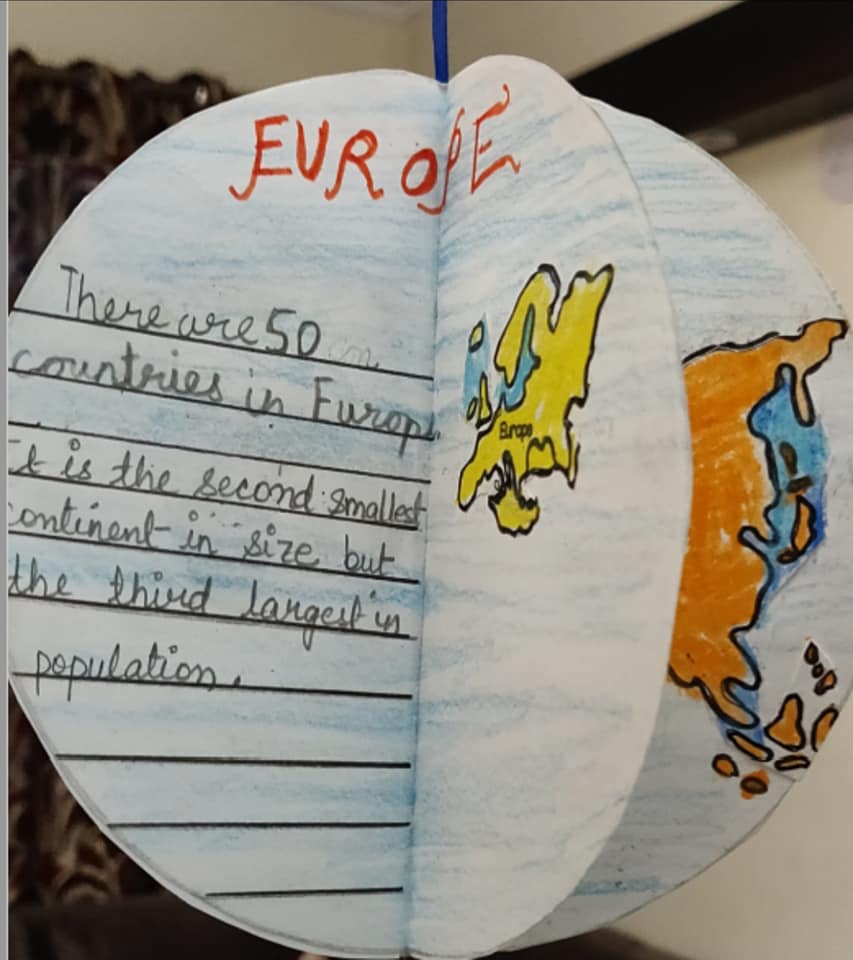 EUROPE
There are 50
countries in Europe.
It is the second smallest
continent in size but
the third largest in
population.
Europe